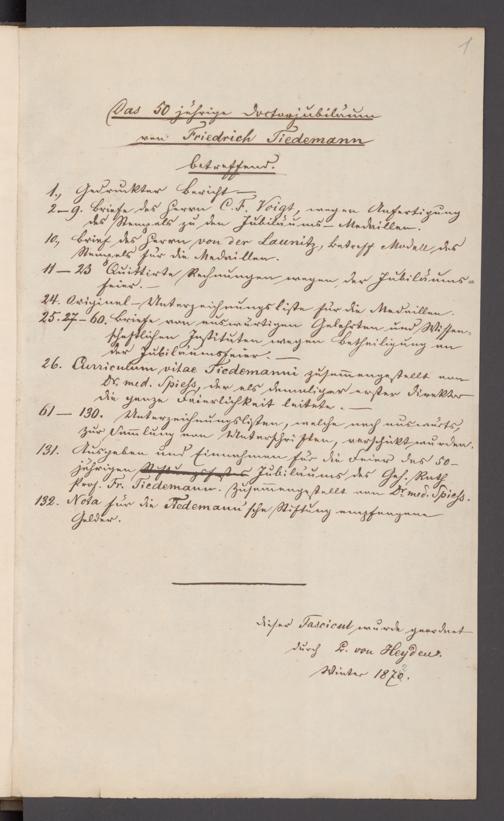 1
Das 50 jährige Doctorjubiläum
von Friedrich Tiedemann
betreffend.
1, Gedruckter Bericht —
2–9. Briefe des Herrn C. F. Voigt, wegen Anfertigung
des Stempels zu den Jubiläums-Medaillen.
10, Brief des Herrn von der Launitz, betreff Modell des
Stempels für die Medaillen.
11–23 Quittirte Rechnungen wegen der Jubiläums-
feier. —
24. Original-Unterzeichnungsliste für die Medaillen.
25. 27–60. Briefe von auswärtigen Gelehrten und Wissen-
schaftlichen Instituten wegen Betheiligung an
der Jubiläumsfeier. —
26. Curriculum vitae Tiedemanni zusammengestellt von
Dr. med. Spiess, der als damaliger erster Direktor
die ganze Feierlichkeit leitete. —
61–130. Unterzeichnungslisten, welche nach auswärts,
zur Sammlung von Unterschriften, verschickt wurden.
131. Ausgaben und Einnahmen für die Feier des 50-
jährigen Jubiläums des Geh. Rath
Prof. Fr. Tiedemann. Zusammengestellt von Dr. med. Spiess.
132. Nota für die Tiedemann'sche Stiftung empfangene
Gelder.
dieser Fascicul wurde geordnet
durch L. von Heyden.
Winter 1872.